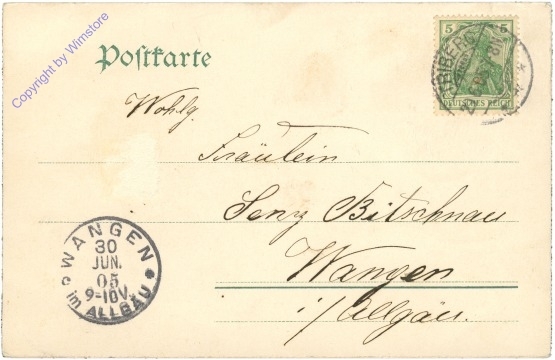 Copyright by Wimstore
Postkarte
5 5
DEUTSCHES REICH
TRIBERG
Wohlg.
Fräulein
Senz Bitschnau
Wangen
i/Allgäu.
WANGEN
30
JUN.
05
9-10V.
im ALLGÄU